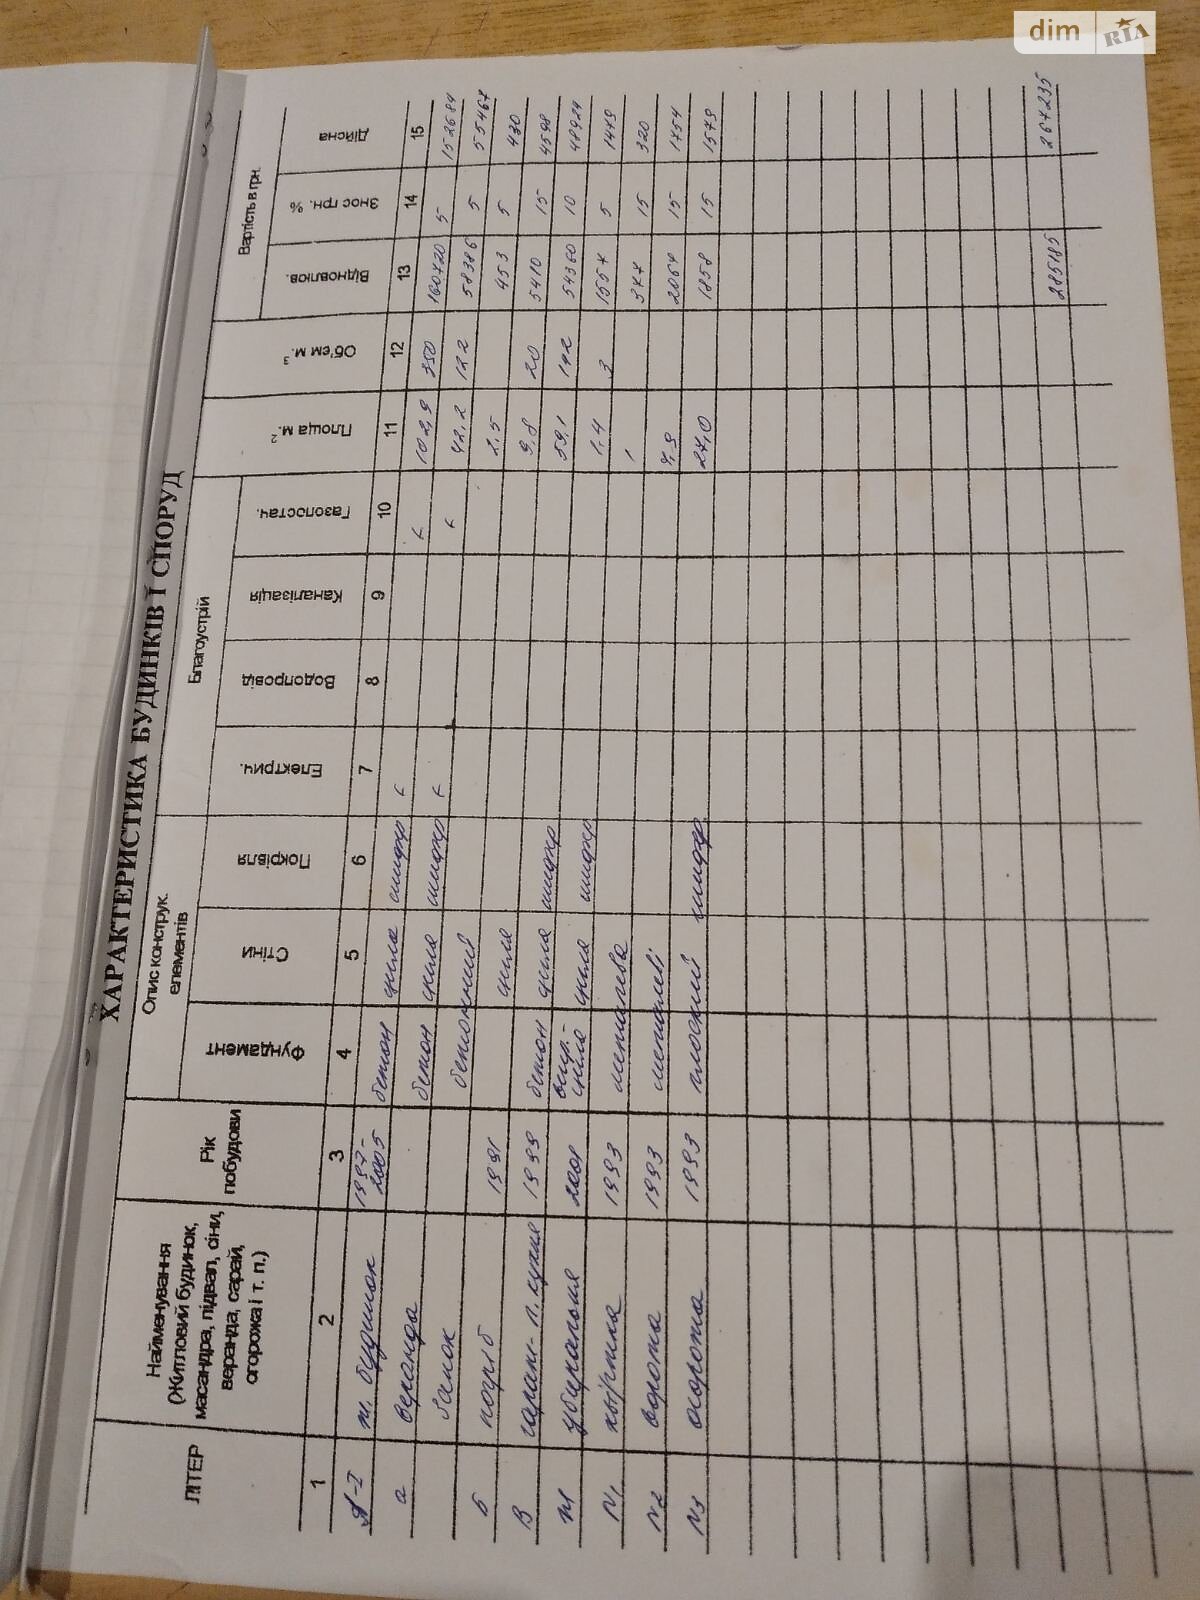 dim RIA
ХАРАКТЕРИСТИКА БУДИНКІВ І СПОРУД
ЛІТЕР
Найменування
(Житловий будинок,
масандра, підвал, сіни,
веранда, сарай,
огорожа і т. п.)
Рік
побудови
Опис конструк.
елементів
Благоустрій
Вартість в грн.
Фундамент
Стіни
Покрівля
Електрич.
Водопровід
Каналізація
Газопостач.
Площа м.²
Об'єм м.³
Відновлюв.
Знос грн. %
Дійсна
1 2 3 4 5 6 7 8 9 10 11 12 13 14 15
А-I ж. будинок 1997-2005 бетон цегла шифер + + 102,9 350 160720 5 152684
а веранда бетон цегла шифер + + 42,2 122 58386 5 55467
ганок бетонний 2,5 453 5 430
Б погріб 1991 цегла 9,8 20 5410 15 4598
В гараж-л. кухня 1999 бетон цегла шифер 59,1 142 54360 10 48924
Ж убиральня 2001 цегла цегла шифер 1,4 3 1557 5 1479
N1 хвіртка 1993 металева 1 377 15 320
N2 ворота 1993 металеві 7,9 2064 15 1754
N3 огорожа 1993 плоский шифер 27,0 1858 15 1579
285185 267235